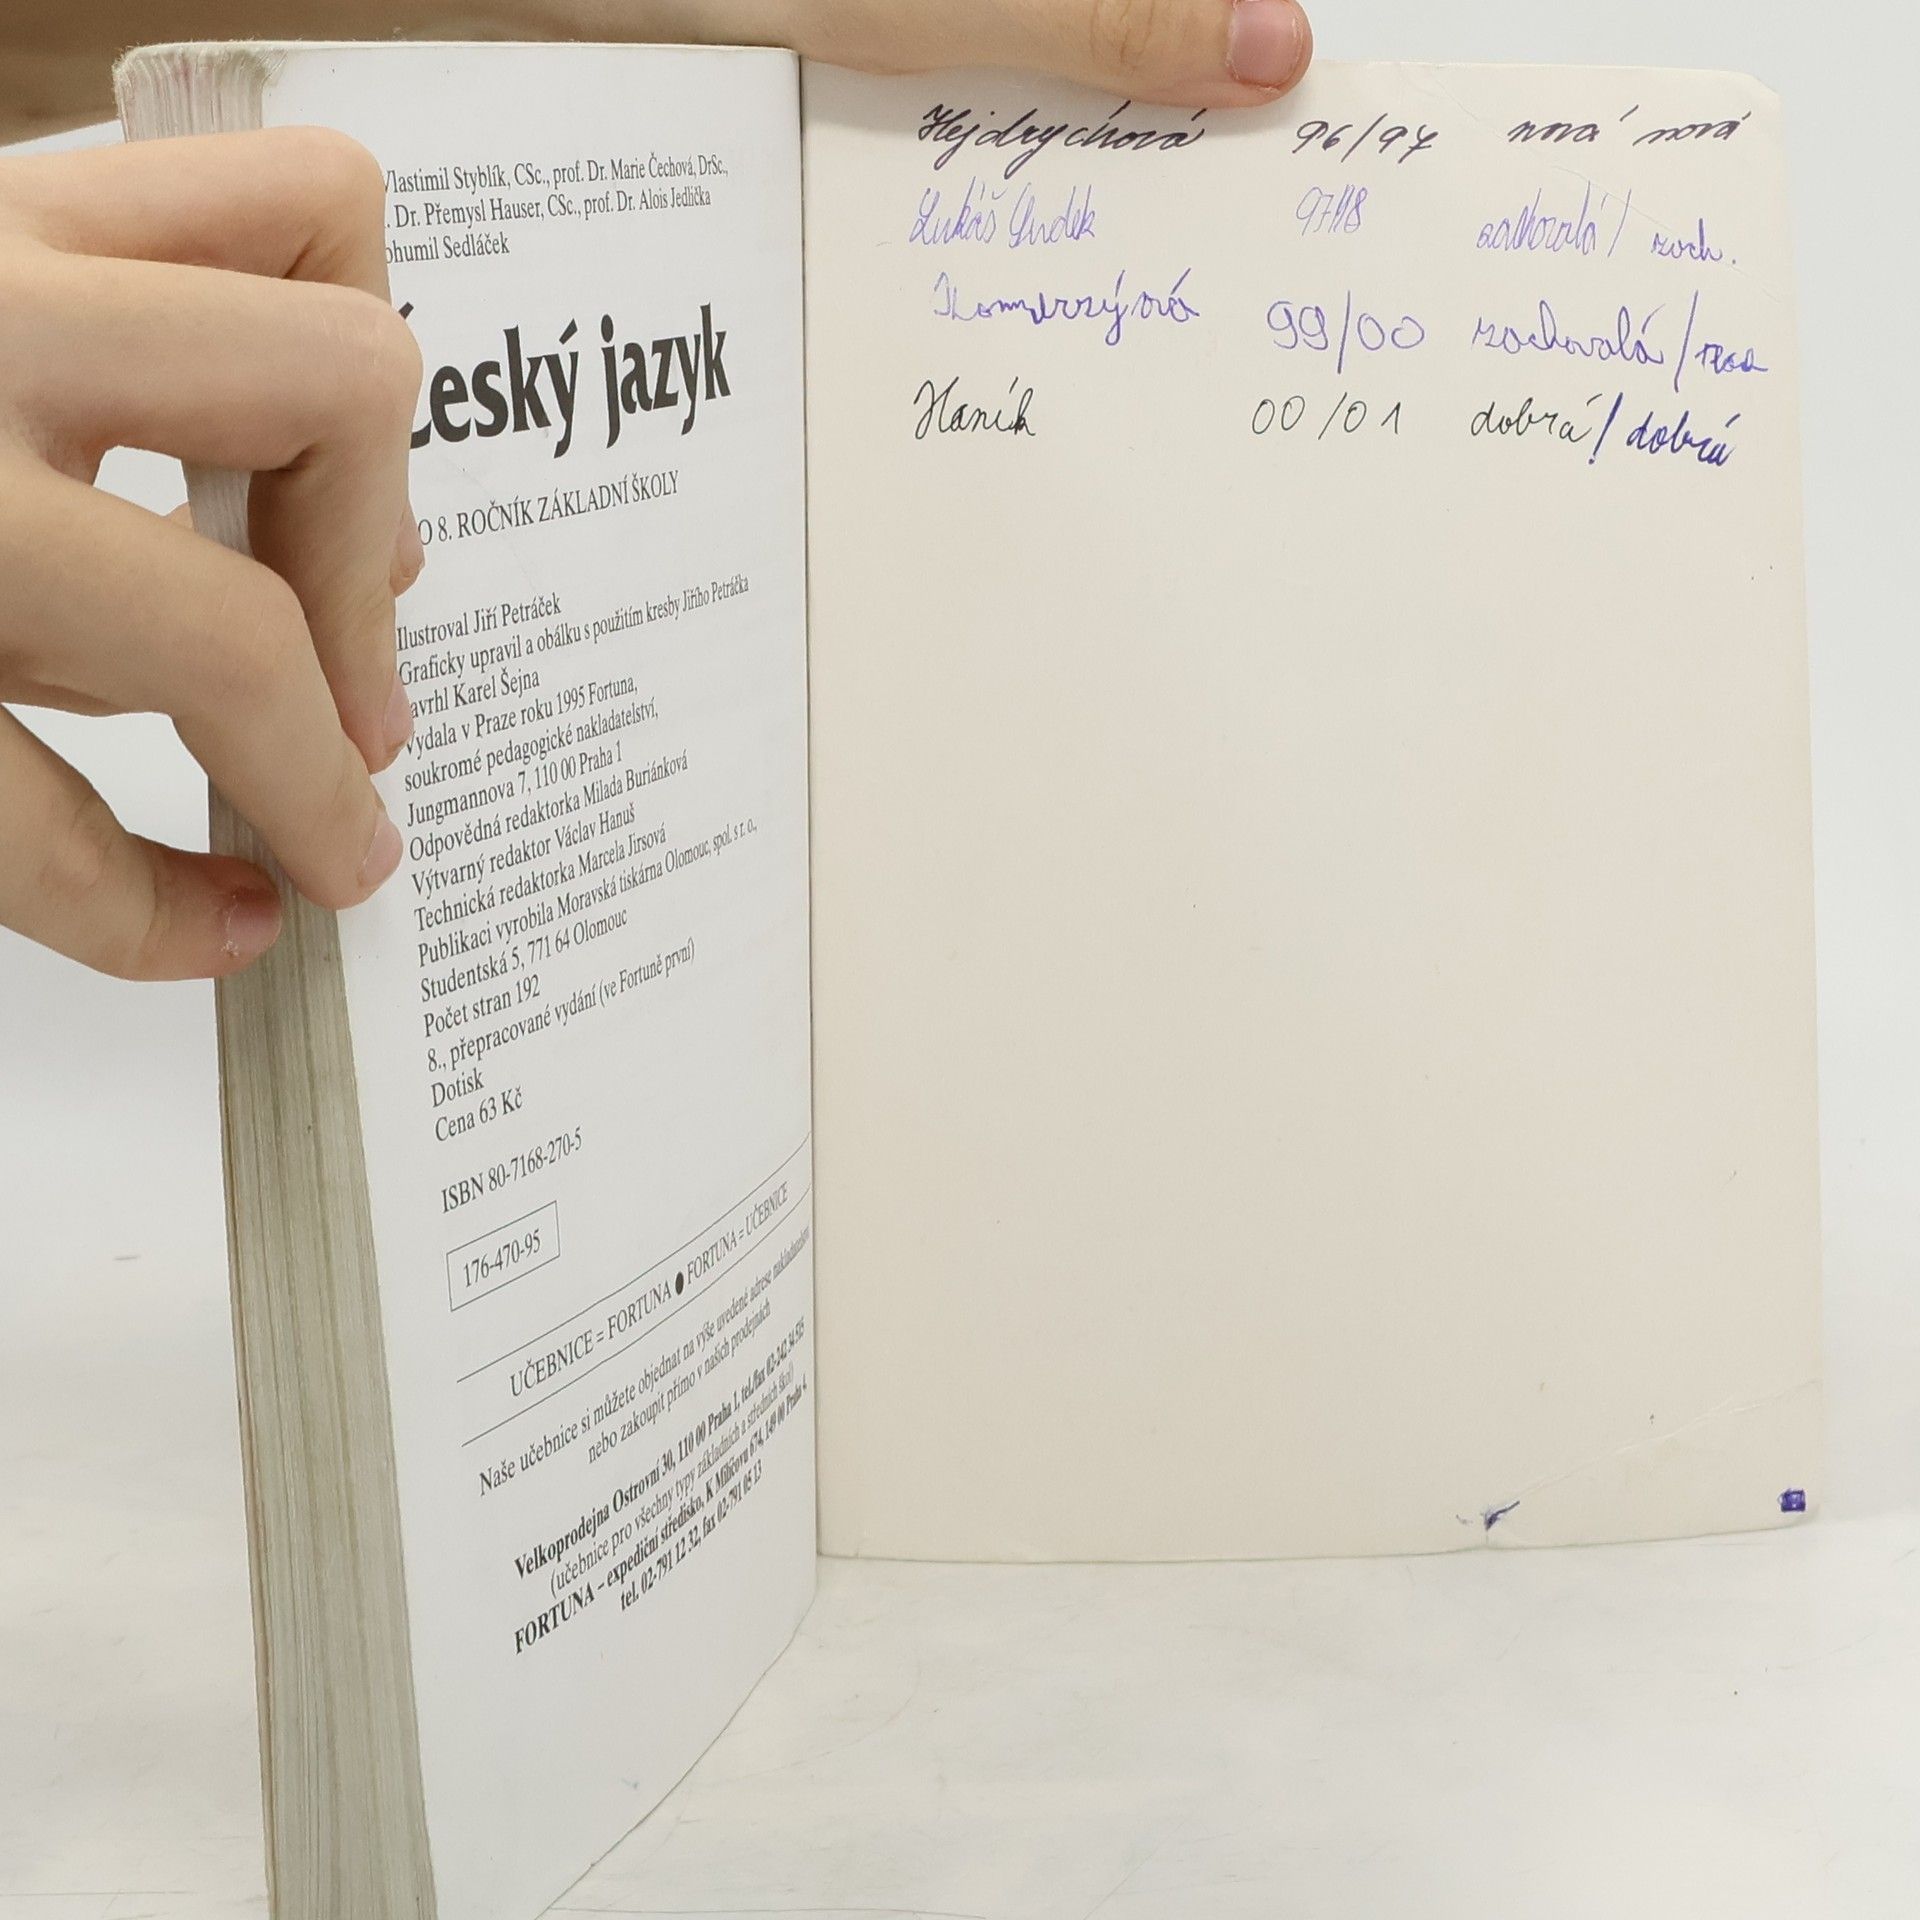 Vlastimil Styblík, CSc., prof. Dr. Marie Čechová, DrSc.,
. Dr. Přemysl Hauser, CSc., prof. Dr. Alois Jedlička
ohumil Sedláček
Český jazyk
O 8. ROČNÍK ZÁKLADNÍ ŠKOLY
Ilustroval Jiří Petráček
Graficky upravil a obálku s použitím kresby Jiřího Petráčka
avrhl Karel Šejna
Vydala v Praze roku 1995 Fortuna,
soukromé pedagogické nakladatelství,
Jungmannova 7, 110 00 Praha 1
Odpovědná redaktorka Milada Buriánková
Výtvarný redaktor Václav Hanuš
Technická redaktorka Marcela Jirsová
Publikaci vyrobila Moravská tiskárna Olomouc, spol. s r. o.,
Studentská 5, 771 64 Olomouc
Počet stran 192
8., přepracované vydání (ve Fortuně první)
Dotisk
Cena 63 Kč
ISBN 80-7168-270-5
176-470-95
UČEBNICE = FORTUNA ● FORTUNA = UČEBNICE
Naše učebnice si můžete objednat na výše uvedené adrese nakladatelství
nebo zakoupit přímo v našich prodejnách
Velkoprodejna Ostrovní 30, 110 00 Praha 1, tel./fax 02-242 34 515
(učebnice pro všechny typy základních a středních škol)
FORTUNA – expediční středisko, K Milíčovu 674, 149 00 Praha 4
tel. 02-791 12 32, fax 02-791 05 13
Hejdrychová 96/97 nová nová
Lukáš Ludek 97/98 zachovalá / zach.
99/00 zachovalá /
Haník 00/01 dobrá / dobrá